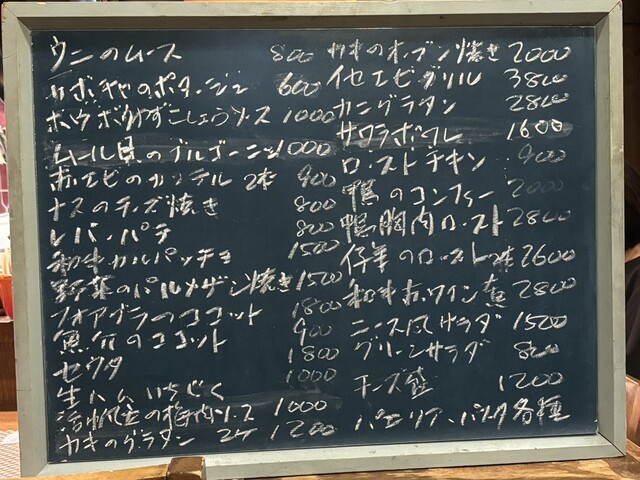 ウニのムース 800
カボチャのポタージュ 600
ホウボウゆずこしょうソース 1000
ムール貝のブルゴーニュ 1000
赤エビのカクテル 2本 900
ナスのチーズ焼き 800
レバーパテ 800
和牛カルパッチョ 1500
野菜のパルメザン焼き 1500
フォアグラのココット 1800
魚介のココット 900
セウタ 1800
生ハムいちじく 1000
活帆立の梅肉ソース 1000
カキのグラタン 2ケ 1200
カキのオーブン焼き 2000
イセエビグリル 3800
カニグラタン 2800
サワラポワレ 1600
ローストチキン 900
鴨のコンフィー 2000
鴨胸肉ロースト 2800
仔羊のロースト 2本 2600
和牛赤ワイン煮 2800
ニース風サラダ 1500
グリーンサラダ 800
チーズ盛 1200
パエリア・パスタ各種